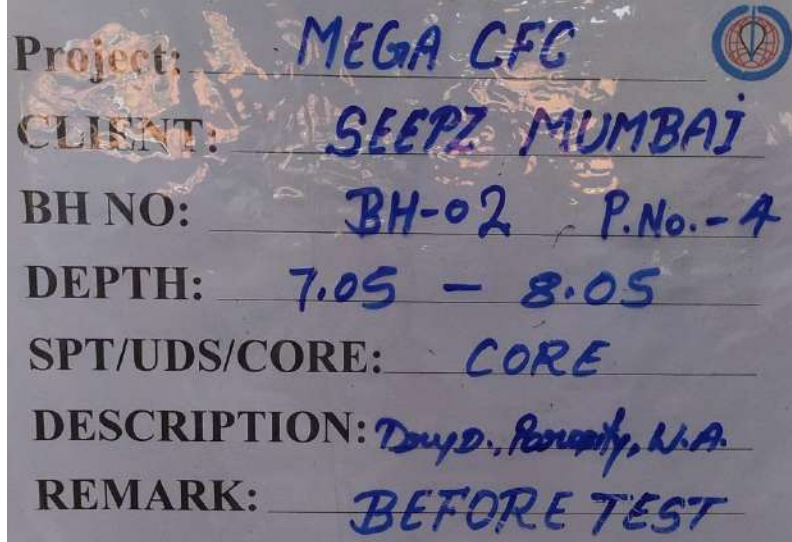 Project: MEGA CFC
CLIENT: SEEPZ MUMBAI
BH NO: BH-02 P.No.-4
DEPTH: 7.05 - 8.05
SPT/UDS/CORE: CORE
DESCRIPTION: Dry D., Porosity, W.A.
REMARK: BEFORE TEST